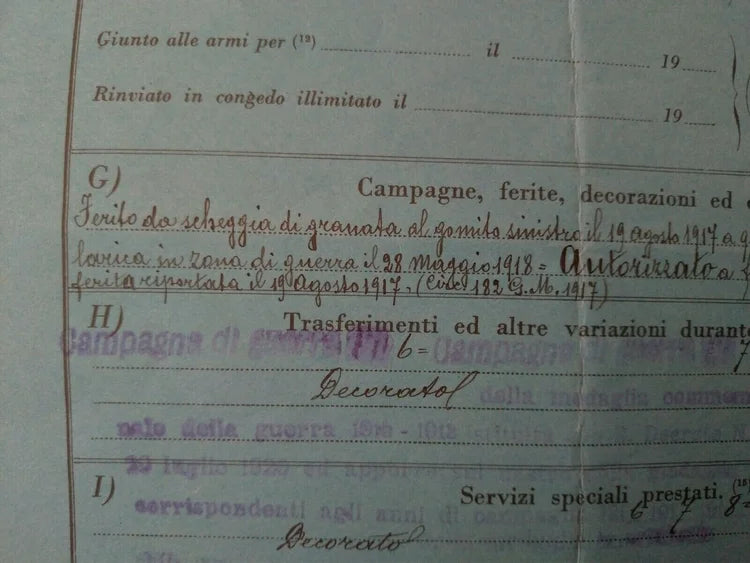 Giunto alle armi per (12) il 19
Rinviato in congedo illimitato il 19
G)
Campagne, ferite, decorazioni ed
Ferito da scheggia di granata al gomito sinistro il 19 agosto 1917 a
in zona di guerra il 28 Maggio 1918 = Autorizzato a
ferita riportata il 19 Agosto 1917 - (Circ. 182 G.M. 1917)
H) Trasferimenti ed altre variazioni durant
Campagna di guerra 191 6 = Campagna di guerra 191 7
Decorato della medaglia comme
nale della guerra 1915 - 1918 istituita Decreto
29 luglio 1920 ed
I) Servizi speciali prestati. (15)
corrispondenti agli anni di campagna 6 7 8=
Decorato